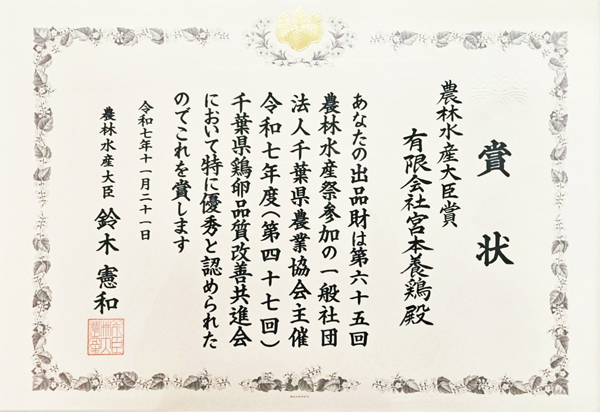 賞状
農林水産大臣賞
有限会社宮本養鶏殿
あなたの出品財は第六十五回
農林水産祭参加の一般社団
法人千葉県農業協会主催
令和七年度(第四十七回)
千葉県鶏卵品質改善共進会
において特に優秀と認められた
のでこれを賞します
令和七年十一月二十一日
農林水産大臣 鈴木憲和